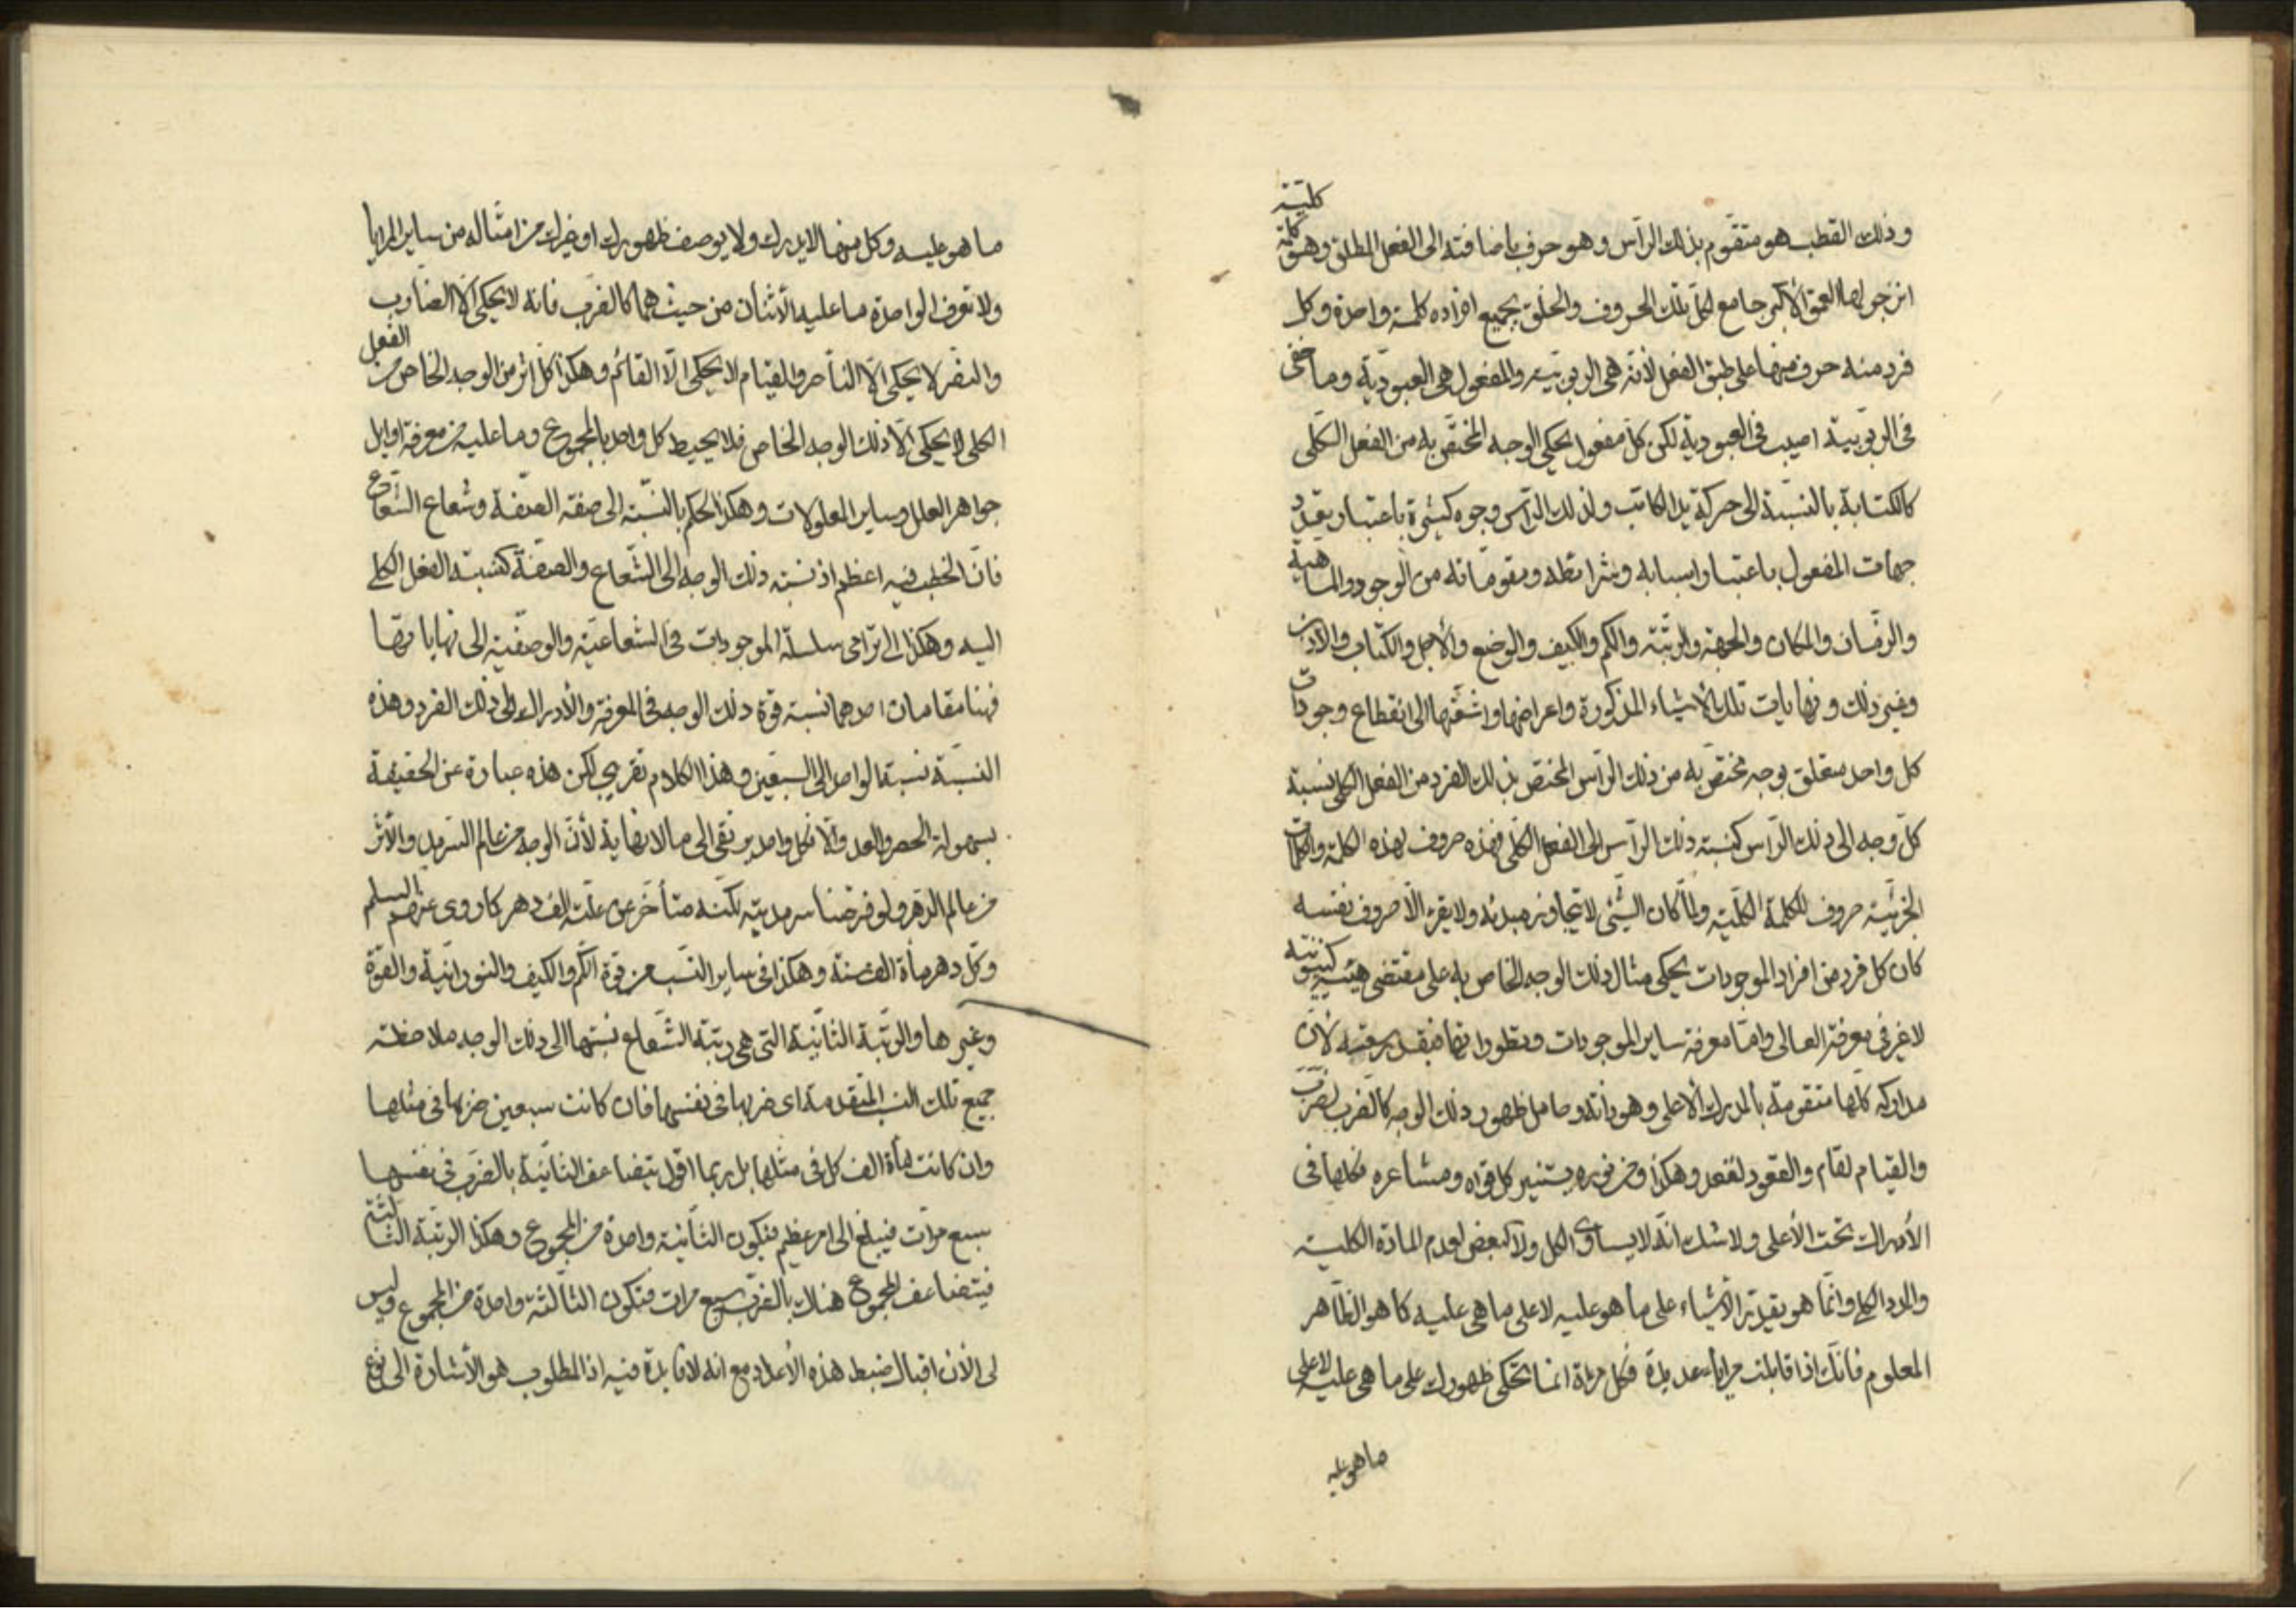 وذلك القطب هو متقوم بذلك الرأس وهو حرف باضافته الى الفعل المطلق وهو كلمة كلية
انزجر لها العمق الأكبر جامع لكل تلك الحروف والخلق بجميع افراده كلمة واحدة وكل
فرد منه حرف منها على طبق الفعل لانه هى الربوبية والمفعول هى العبودية وما خفى
فى الربوبية اصيب فى العبودية لكن كل مفعول يحكى الوجه المختص به من الفعل الكلى
كالكتابة بالنسبة الى حركة يد الكاتب ولذلك الرأس وجوه كثيرة باعتبار تعدد
جهات المفعول باعتبار اسبابه وشرائطه ومقوماته من الوجود والماهية
والزمان والمكان والجهة والرتبة والكم والكيف والوضع والأجل والكتاب والاذن
وغير ذلك ونهايات تلك الأشياء المذكورة واعراضها واشعتها الى انقطاع وجودات
كل واحد متعلق بوجه مختص به من ذلك الرأس المختص بذلك الفرد من الفعل الكلى نسبة
كل وجه الى ذلك الرأس كنسبة ذلك الرأس الى الفعل الكلى فهذه حروف لهذه الكلمة والكلمات
الجزئية حروف للكلمة الكلية ولما كان الشيئ لا يتجاوز مبدئه ولا يقرء الا حروف نفسه
كان كل فرد من افراد الموجودات يحكى مثال ذلك الوجه الخاص به على مقتضى هيئة كينونته
لا غير فى معرفة العالى واما معرفة ساير الموجودات وتطوراتها فبقدر رتبته لأن
مداركه كلها متقومة بالمدرك الأعلى وهو بذاته حامل ظهور ذلك الوجه كالضرب لضرب
والقيام لقام والقعود لقعد وهكذا ومن نوره يستنير كل قواه ومشاعره فكلها فى
الأدراك تحت الأعلى ولا شك انه لا يساوى الكل ولا البعض لعدم المادة الكلية
والمدد الكلى وانما هو بقدر الأشياء على ما هو عليه لا على ما هى عليه كما هو الظاهر
المعلوم فانك اذا قابلت مرايا عديدة فكل مرءاة انما تحكى ظهورك على ما هى عليه لا على
ما هو عليه
ما هو عليه وكل منها لا يدرك ولا يوصف ظهورك او غيرك من امثاله من ساير المرايا
ولا تعرف الواحدة ما عليه الأثنان من حيث هما كالضرب فانه لا يحكى الا الضارب
والنصر لا يحكى الا الناصر والقيام لا يحكى الا القائم وهكذا كل اثر من الوجه الخاص من الفعل
الكلى لا يحكى الا ذلك الوجه الخاص فلا يحيط كل واحد بالمجموع وما عليه من معرفة اوايل
جواهر العلل وساير المعلولات وهكذا الحكم بالنسبة الى صفة الصفة وشعاع الشعاع
فان الخطب فيه اعظم اذ نسبة ذلك الوجه الى الشعاع والصفة كنسبة الفعل الكلى
اليه وهكذا الى ترامى سلسلة الموجودات فى الشعاعية والوصفية الى نهاياتها
فهنا مقامان احدهما نسبة قوة ذلك الوجه فى المعرفة والأدراك الى ذلك الفرد وهذه
النسبة نسبة الواحد الى السبعين وهذا الكلام تقريبى لكن هذه عبارة عن الحقيقة
بسهولة الحصر والعد والا فكل واحد يرتقى الى ما لا نهاية لأن الوجه من عالم السرمد والأثر
من عالم الدهر ولو فرضنا سرمديته لكنه متأخر عن علته الف دهر كما روى عنهم السلم
وكل دهر مأة الف سنة وهكذا فى ساير النسب من قوة الكم والكيف والنورانية والقوة
وغيرها والرتبة الثانية التى هى رتبة الشعاع نسبتها الى ذلك الوجه ملاحظة
جميع تلك النسب المتقدمة اى ضربها فى نفسها فان كانت سبعين ضربها فى مثلها
وان كانت مأة الف كل فى مثلها بل ربما اقول يتضاعف الثانية بالضرب فى نفسها
سبع مرات فيبلغ الى امر عظيم فتكون الثانية واحدة من المجموع وهكذا الرتبة الثالثة
فيتضاعف المجموع هناك بالضرب سبع مرات فتكون الثالثة واحدة من المجموع وليس
لى الأن اقبال ضبط هذه الأعداد مع انه لا فايدة فيه اذ المطلوب هو الأشارة الى نوع